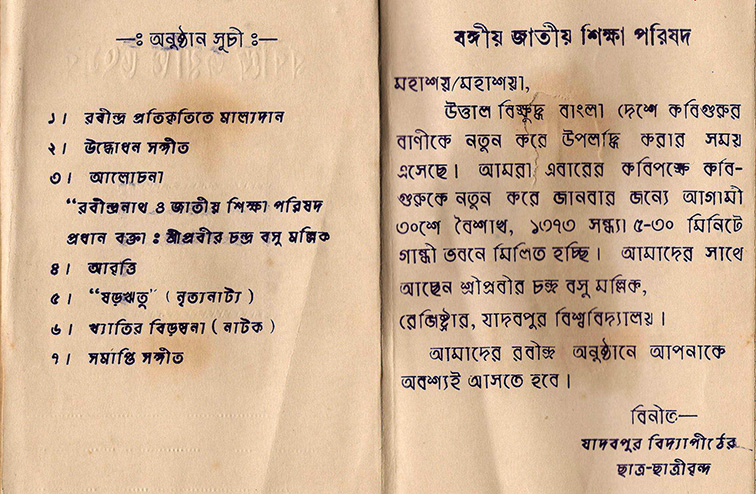 —ঃ অনুষ্ঠান সূচী ঃ—
১। রবীন্দ্র প্রতিকৃতিতে মাল্যদান
২। উদ্বোধন সঙ্গীত
৩। আলোচনা
“রবীন্দ্রনাথ ও জাতীয় শিক্ষা পরিষদ
প্রধান বক্তা : শ্রীপ্রবীর চন্দ্র বসু মল্লিক
৪। আবৃত্তি
৫। “ষড়ঋতু” (নৃত্যনাট্য)
৬। খ্যাতির বিড়ম্বনা (নাটক)
৭। সমাপ্তি সঙ্গীত
বঙ্গীয় জাতীয় শিক্ষা পরিষদ
মহাশয়/মহাশয়া,
উত্তাল বিক্ষুদ্ধ বাংলা দেশে কবিগুরুর
বাণীকে নতুন করে উপলদ্ধি করার সময়
এসেছে। আমরা এবারের কবিপক্ষে কবি-
গুরুকে নতুন করে জানবার জন্যে আগামী
৩০শে বৈশাখ, ১৩৭৩ সন্ধ্যা ৫-৩০ মিনিটে
গান্ধী ভবনে মিলিত হচ্ছি। আমাদের সাথে
আছেন শ্রীপ্রবীর চন্দ্র বসু মল্লিক,
রেজিষ্ট্রার, যাদবপুর বিশ্ববিদ্যালয়।
আমাদের রবীন্দ্র অনুষ্ঠানে আপনাকে
অবশ্যই আসতে হবে।
বিনীত—
যাদবপুর বিদ্যাপীঠের
ছাত্র-ছাত্রীবৃন্দ